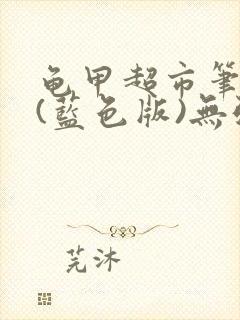 龟甲超市筆
(藍色版)無
芫沐